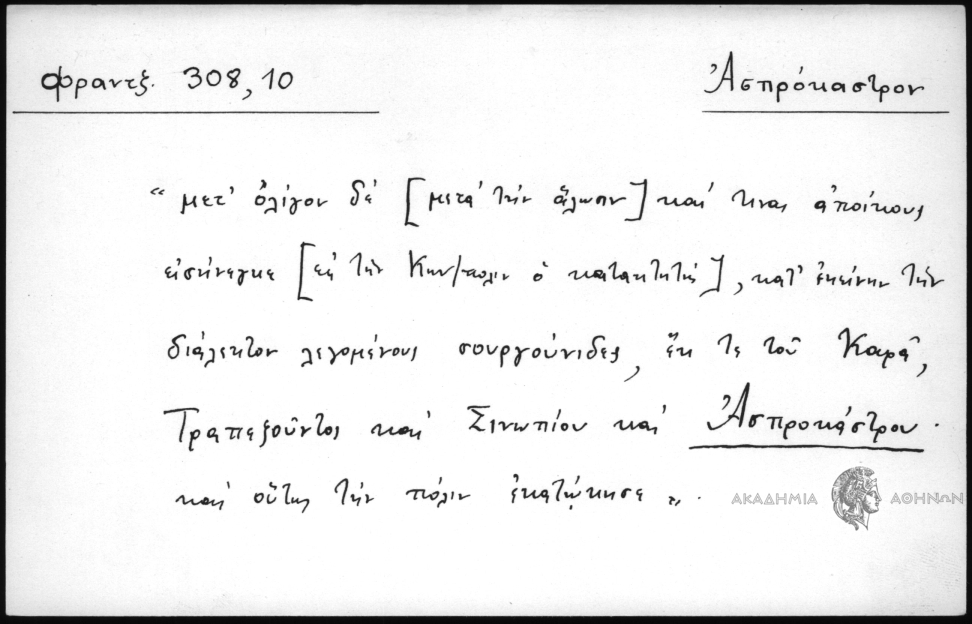 Φραντζ. 308,10
Ἀσπρόκαστρον
“ μετ' ὀλίγον δέ [μετά τήν ἅλωσιν] καί τινας ἀποίκους
εἰσήνεγκε [εἰς τήν Κων/πολιν ὁ κατακτητής], κατ' ἐκείνην τήν
διάλεκτον λεγομένους σουργούνιδες, ἔκ τε τοῦ Καφᾶ,
Τραπεζοῦντος καί Σινωπίου καί Ἀσπροκάστρου·
καί οὕτως τήν πόλιν ἐκατῴκησε ”.
ΑΚΑΔΗΜΙΑ ΑΘΗΝΩΝ